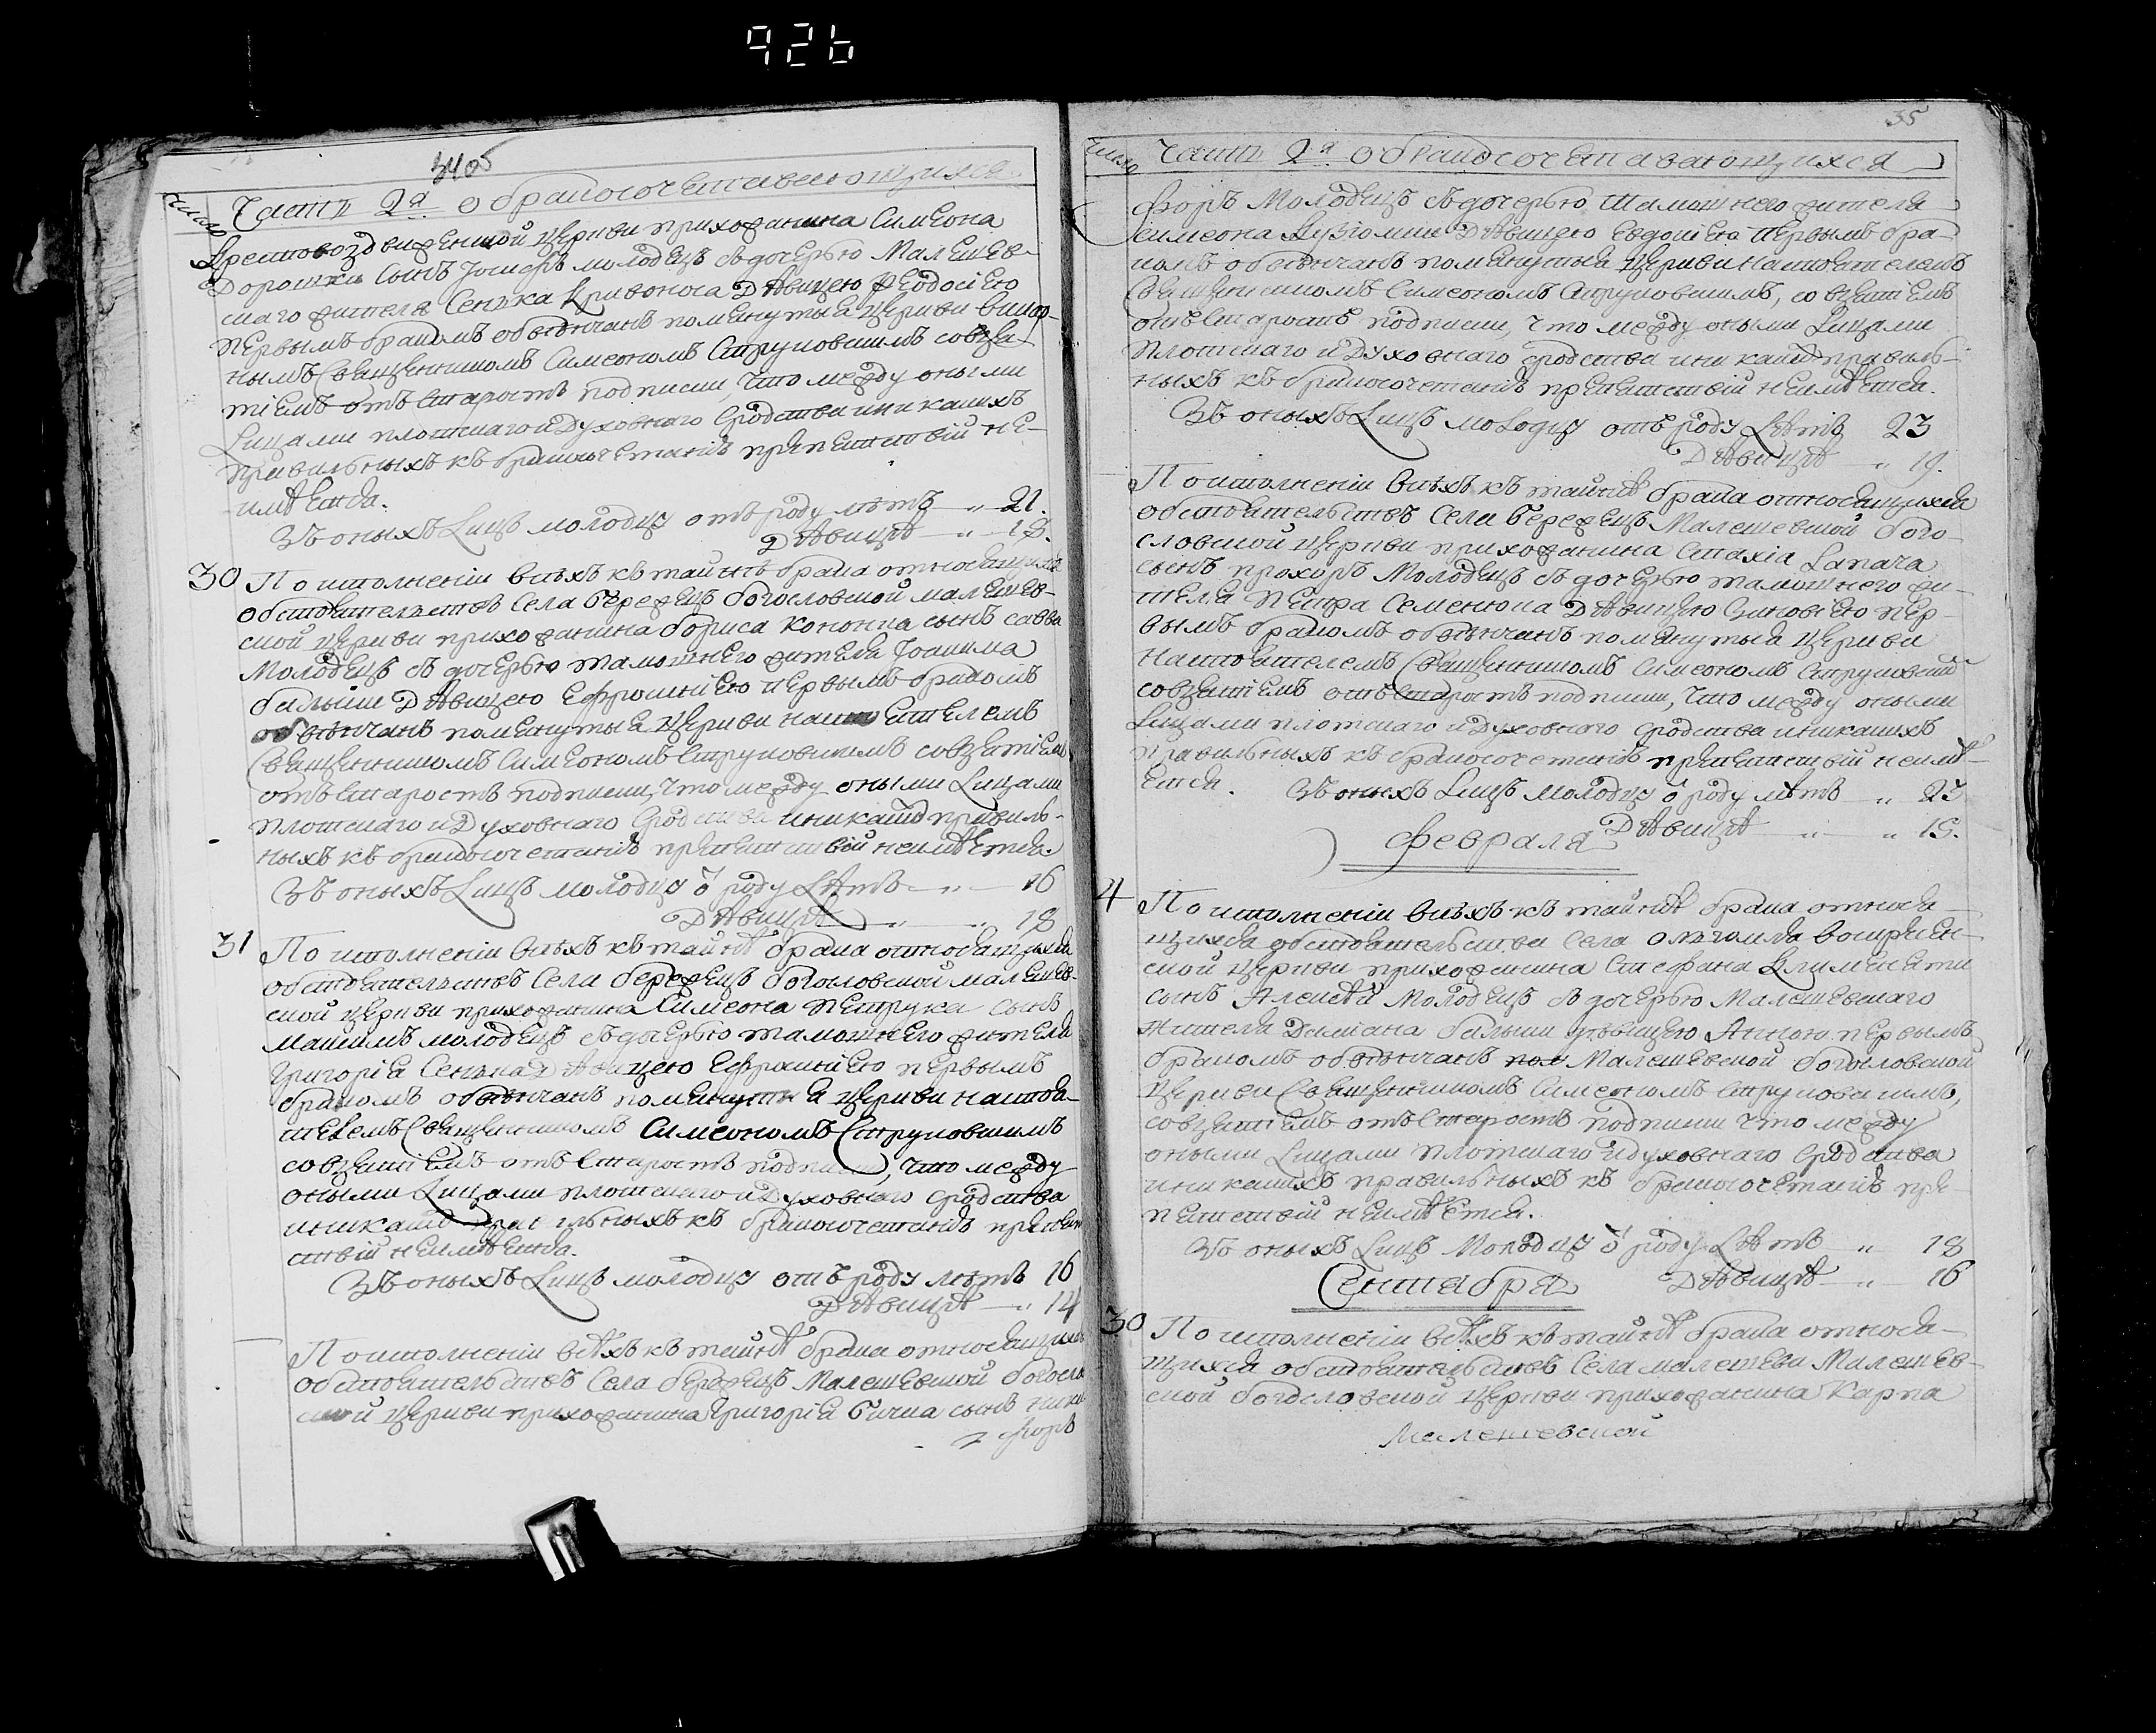 926
3405
Число
Часть 2я о бракосочетавающихся
Крестовоздвиженской церкви прихожанина Симеона
Дорошки сынъ Іосифъ молодецъ съ дочерью Малешев-
скаго жителя Сенька Кривоноса дѣвицею Феодосіею
первымъ бракомъ обвѣнчанъ помянутыя церкви
нымъ Священникомъ Симеономъ Струковскимъ совзя-
тіемъ отъ старостъ подписки, что между оными
Лицами плотскаго и духовнаго сродства и никакихъ
правильныхъ къ бракосочетанію препятствій не-
имѣется.
Зъ оныхъ Лицъ молодцу отъ роду лѣтъ " 21.
Дѣвицѣ " 18.
30 По исполненіи всѣхъ къ тайнѣ брака относящихся
обстоятельствъ Села Бережецъ богословской малешев-
ской церкви прихожанина бориса Кононца сынъ савва
Молодецъ съ дочерью тамошнего жителя Іоакима
бальши Дѣвицею Ефросиніею первымъ бракомъ
обвѣнчанъ помянутыя церкви настоятелемъ
Священникомъ Симеономъ Струковскимъ совзятіемъ
отъ старостъ подписки, что между оными Лицами
плотскаго и духовнаго Сродства и никакихъ правиль-
ныхъ къ бракосочетанію препятствій неимѣется.
Зъ оныхъ Лицъ молодцу ѿ роду Лѣтъ " 16
Дѣвицѣ " 18
31 По исполненіи всѣхъ къ тайнѣ брака относящихся
обстоятельствъ Села бережецъ богословской малешев-
ской церкви прихожанина Симеона Петрука сынъ
Максимъ молодецъ съ дочерью тамошнего жителя
Григорія Сенька Дѣвицею Ефросиніею первымъ
бракомъ обвѣнчанъ помянутыя церкви настоя-
телемъ Священникомъ Симеономъ Струковскимъ
совзятіемъ отъ старостъ подписки, что между
оными Лицами плотскаго и духовнаго сродства
и никакихъ правильныхъ къ бракосочетанію препят
ствій неимѣется.
Зъ оныхъ Лицъ молодцу отъ роду лѣтъ 16
Дѣвицѣ " 14
По исполненіи всѣхъ къ тайнѣ брака относящихся
обстоятельствъ Села бережецъ Малешевской богосло
ской церкви прихожанина Григорія Бичка сынъ ники
форъ
35
Число
Часть 2я о бракосочетавающихся
форъ Молодецъ съ дочерью тамошнего жителя
симеона Кузіомки Дѣвицею Евдокіею первымъ бра-
комъ обвѣнчанъ помянутыя церкви настоятелемъ
Священникомъ Симеономъ Струковскимъ, совзятіемъ
отъ старостъ подписки, что между оными Лицами
плотскаго и духовнаго сродства и никакихъ правиль-
ныхъ къ бракосочетанію препятствій неимѣется.
Зъ оныхъ Лицъ молодцу отъ роду Лѣтъ 23
Дѣвицѣ " 19.
По исполненіи всѣхъ къ тайнѣ брака относящихся
обстоятельствъ Села бережецъ Малешевской бого-
словской церкви прихожанина Стахія Лапача
сынъ прохоръ Молодецъ съ дочерью тамошнего жи-
теля Петра Семенюка Дѣвицею Зиновіею пер-
вымъ бракомъ обвѣнчанъ помянутыя церкви
Настоятелемъ Священникомъ Симеономъ Струковски
совзятіемъ отъ старостъ подписки, что между оными
Лицами плотскаго и духовнаго сродства и никакихъ
правильныхъ къ бракосочетанію препятствій неимѣ-
ется. Зъ оныхъ Лицъ молодцу ѿ роду лѣтъ " 23
Дѣвицѣ " " 15.
Февраля
4 По исполненіи всѣхъ къ тайнѣ брака относя-
щихся обстоятельства Села Ольгомля воскресен-
ской церкви прихожанина Стефана Клименяти
сынъ Алексѣй Молодецъ съ дочерью Малешевскаго
жителя Даміана бальши дѣвицею Анною первымъ
бракомъ обвѣнчанъ пом Малешевской богословской
церкви Священникомъ Симеономъ Струковскимъ,
совзятіемъ отъ старостъ подписки что между
оными Лицами плотскаго и духовнаго сродства
и никакихъ правильныхъ къ бракосочетанію пре-
пятствій неимѣется.
Зъ оныхъ Лицъ Молодцу ѿ роду Лѣтъ " 18
Дѣвицѣ " 16
Сентября
30 По исполненіи всѣхъ къ тайнѣ брака относя-
щихся обстоятельствъ Села малешева Малешев-
ской богословской церкви прихожанина Карпа
Малешевской